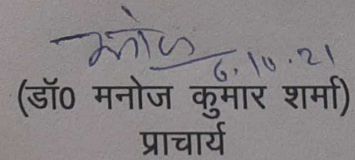 मनोज
6.10.21
(डॉ0 मनोज कुमार शर्मा)
प्राचार्य